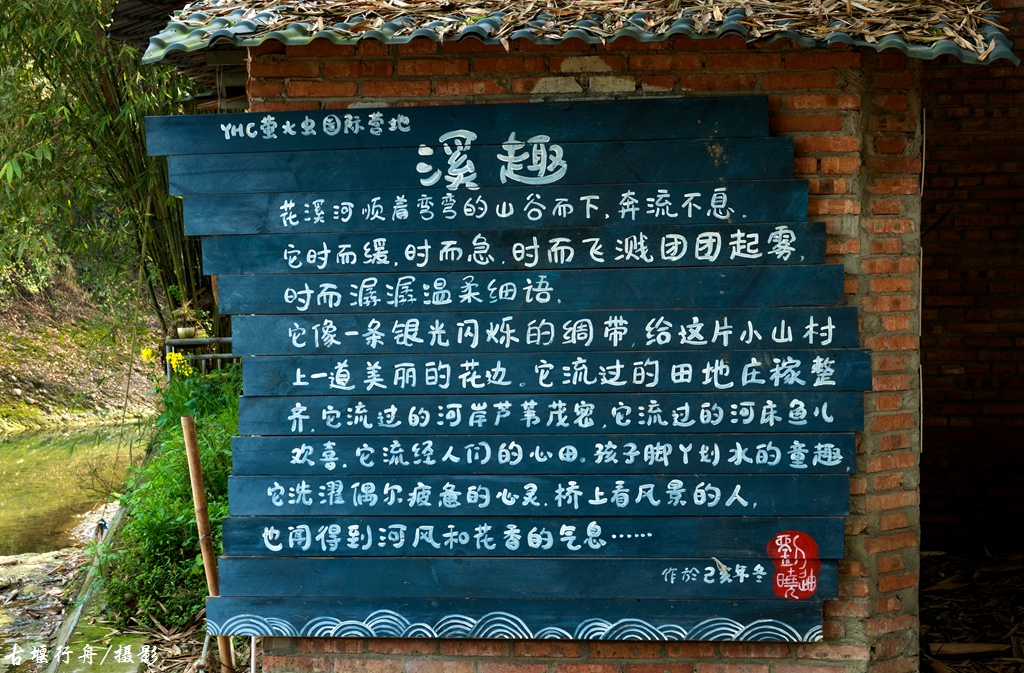 YHC萤火虫国际营地
溪趣
花溪河顺着弯弯的山谷而下,奔流不息.
它时而缓,时而急,时而飞溅团团起雾,
时而潺潺温柔细语.
它像一条银光闪烁的绸带,给这片小山村
上一道美丽的花边。它流过的田地庄稼整
齐,它流过的河岸芦苇茂密,它流过的河床鱼儿
欢喜,它流经人们的心田,孩子脚丫划水的童趣
它洗濯偶尔疲惫的心灵,桥上看风景的人,
也闻得到河风和花香的气息……
作於己亥年冬
古堰行舟/摄影